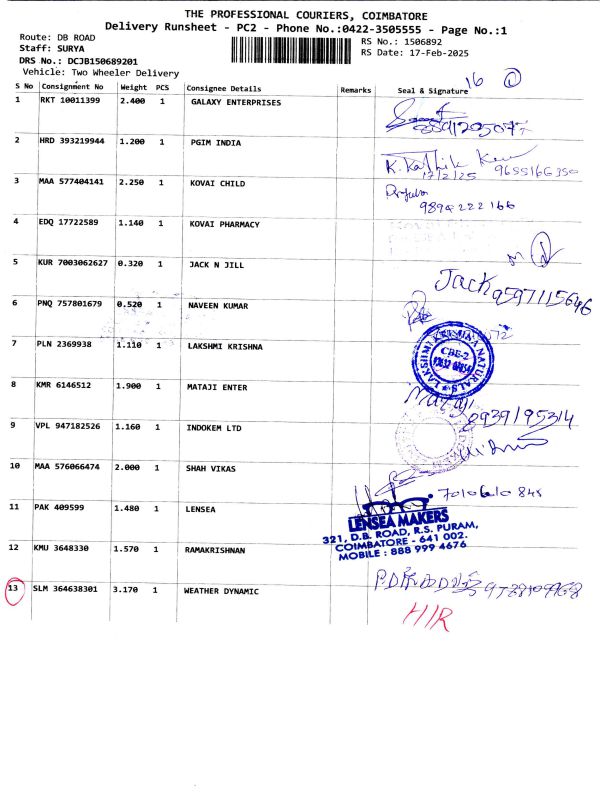 THE PROFESSIONAL COURIERS, COIMBATORE
Delivery Runsheet - PC2 - Phone No.:0422-3505555 - Page No.:1
Route: DB ROAD
RS No.: 1506892
Staff: SURYA
RS Date: 17-Feb-2025
DRS No.: DCJB150689201
Vehicle: Two Wheeler Delivery
16 1
S No Consignment No Weight PCS Consignee Details Remarks Seal & Signature
1 RKT 10011399 2.400 1 GALAXY ENTERPRISES
2 HRD 393219944 1.200 1 PGIM INDIA
K. Kathik
17/2/25 9655166350
3 MAA 577404141 2.250 1 KOVAI CHILD
9894222166
4 EDQ 17722589 1.140 1 KOVAI PHARMACY
5 KUR 7003062627 0.320 1 JACK N JILL
Jack 9597115646
6 PNQ 757801679 0.520 1 NAVEEN KUMAR
7 PLN 2369938 1.110 1 LAKSHMI KRISHNA
LAKSHMI KRISHNA NATURALS
CBE-2
8 KMR 6146512 1.900 1 MATAJI ENTER
Mataji
8939195314
9 VPL 947182526 1.160 1 INDOKEM LTD
10 MAA 576066474 2.000 1 SHAH VIKAS
7010610845
11 PAK 409599 1.480 1 LENSEA
LENSEA MAKERS
321, D.B. ROAD, R.S. PURAM,
COIMBATORE - 641 002.
MOBILE : 888 999 4676
12 KMU 3648330 1.570 1 RAMAKRISHNAN
13 SLM 364638301 3.170 1 WEATHER DYNAMIC
H/R